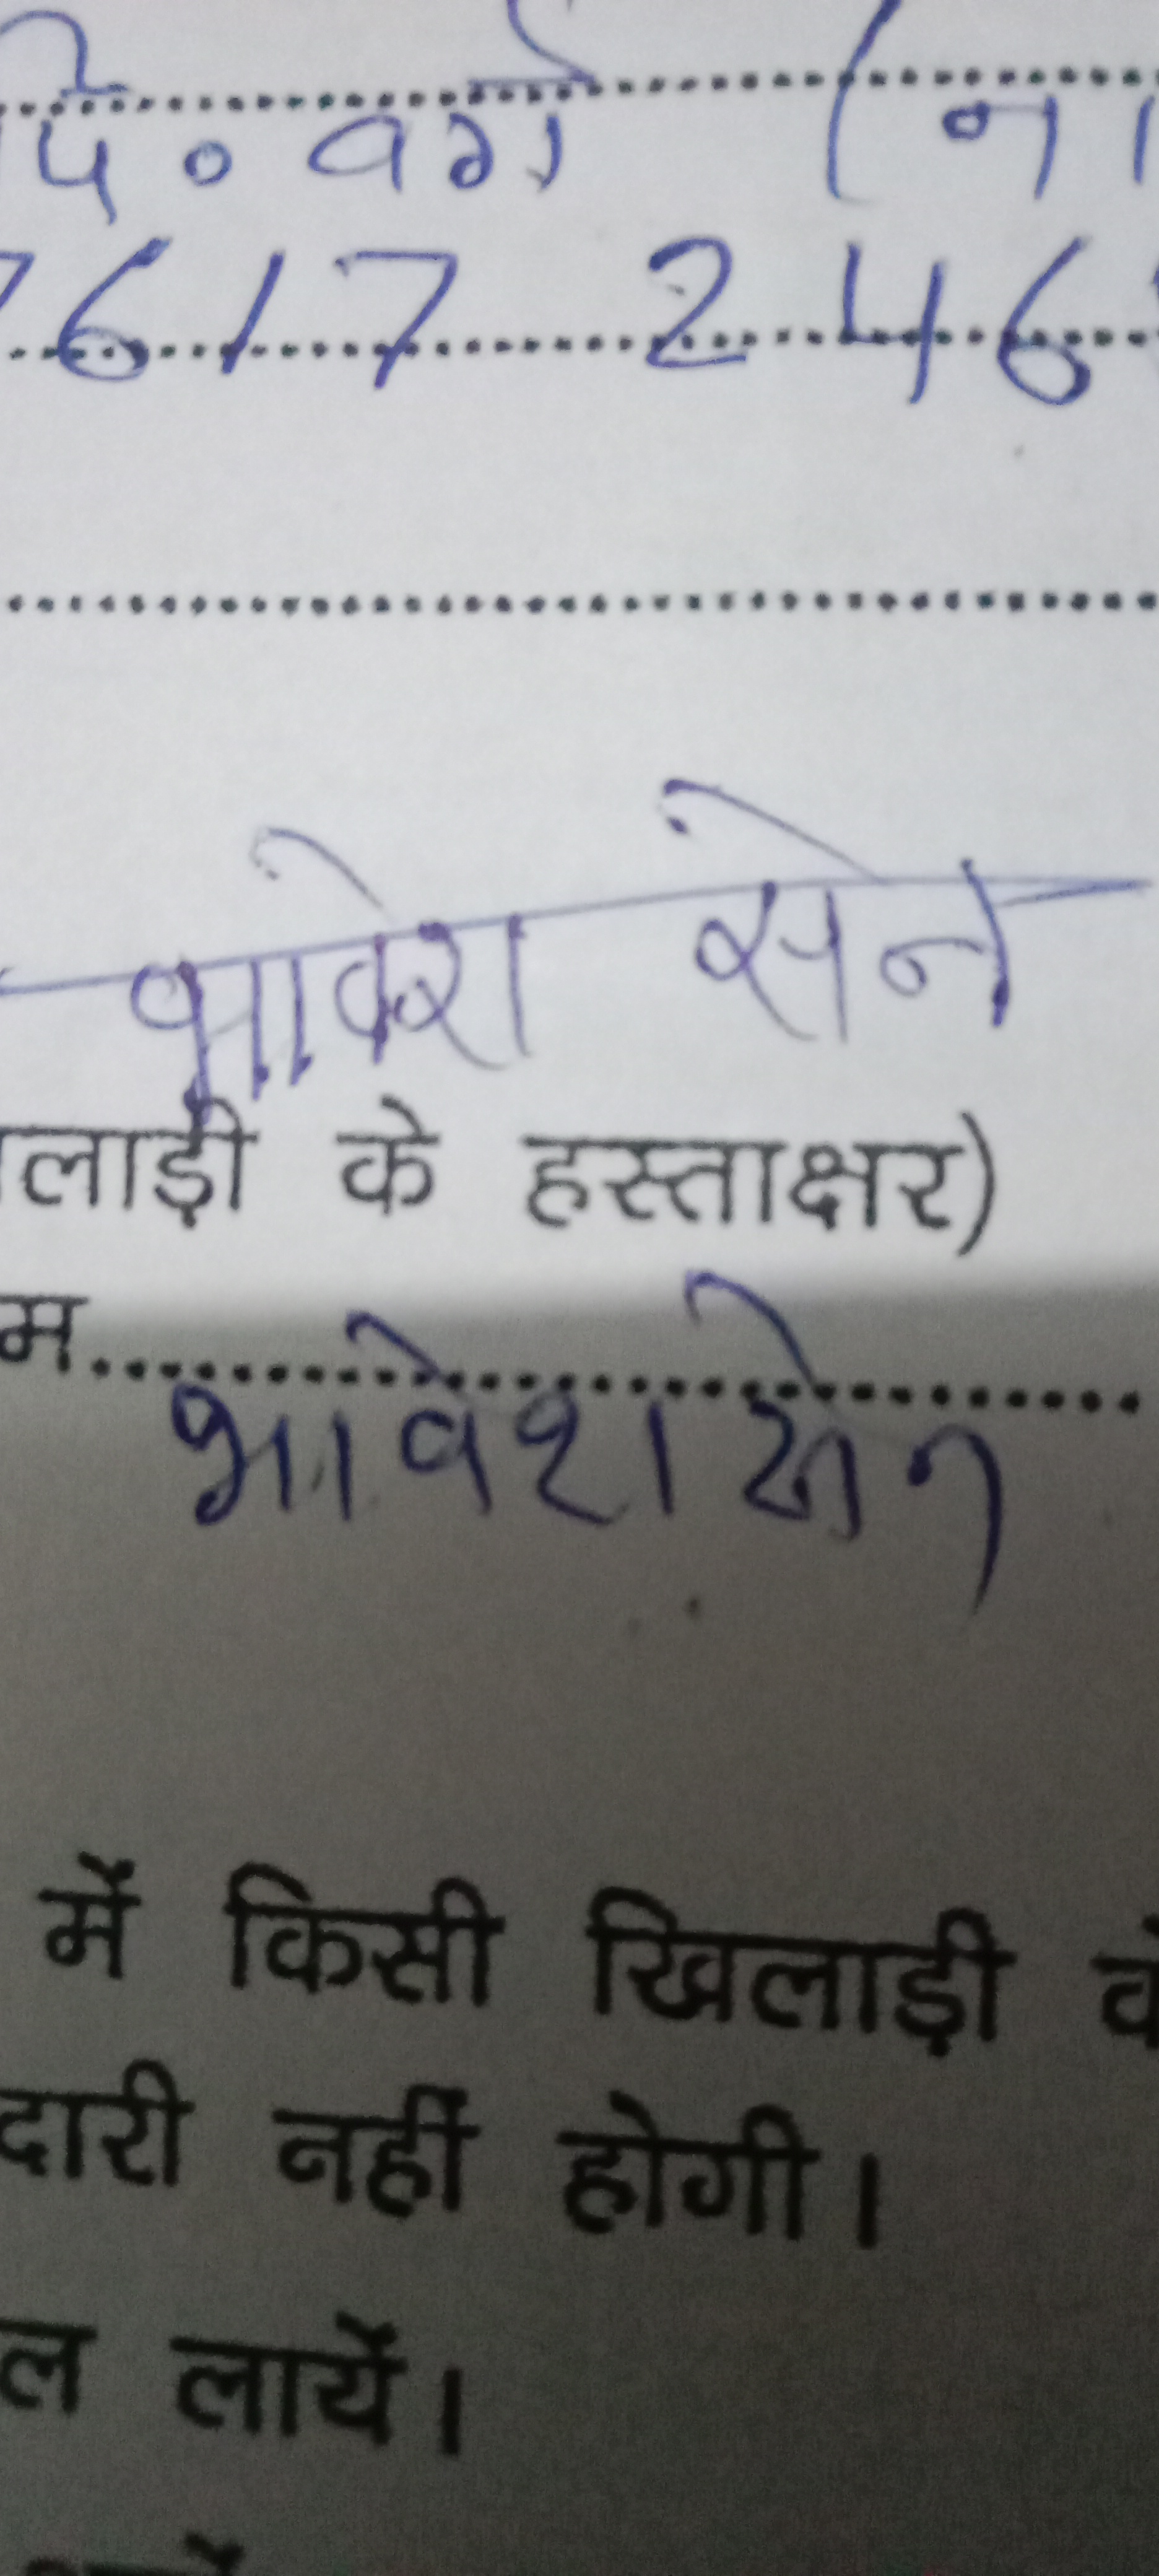 पि. वर्ग (ना
7617 246
भावेश सेन
लाड़ी के हस्ताक्षर)
म....................
भावेश सेन
में किसी खिलाड़ी
दारी नहीं होगी।
ल लायें।